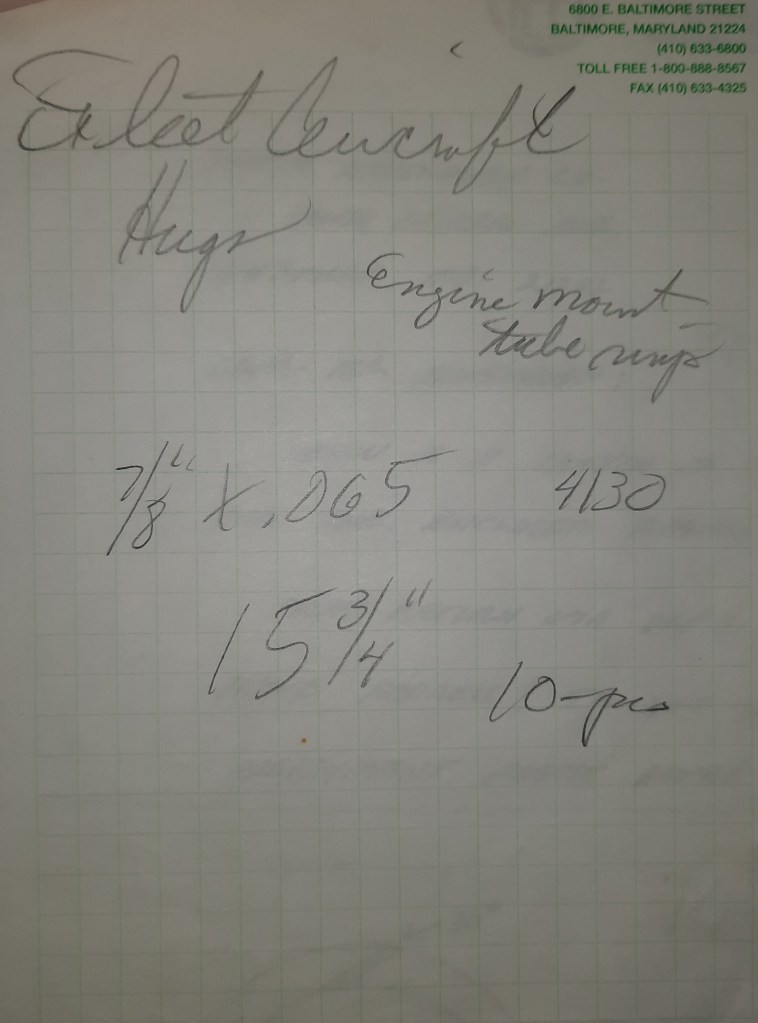 6800 E. BALTIMORE STREET
BALTIMORE, MARYLAND 21224
(410) 633-6800
TOLL FREE 1-800-888-8567
FAX (410) 633-4325
Aircraft
Engine mount
tube rings
7/8" X .065 4130
15 3/4"
10-pcs